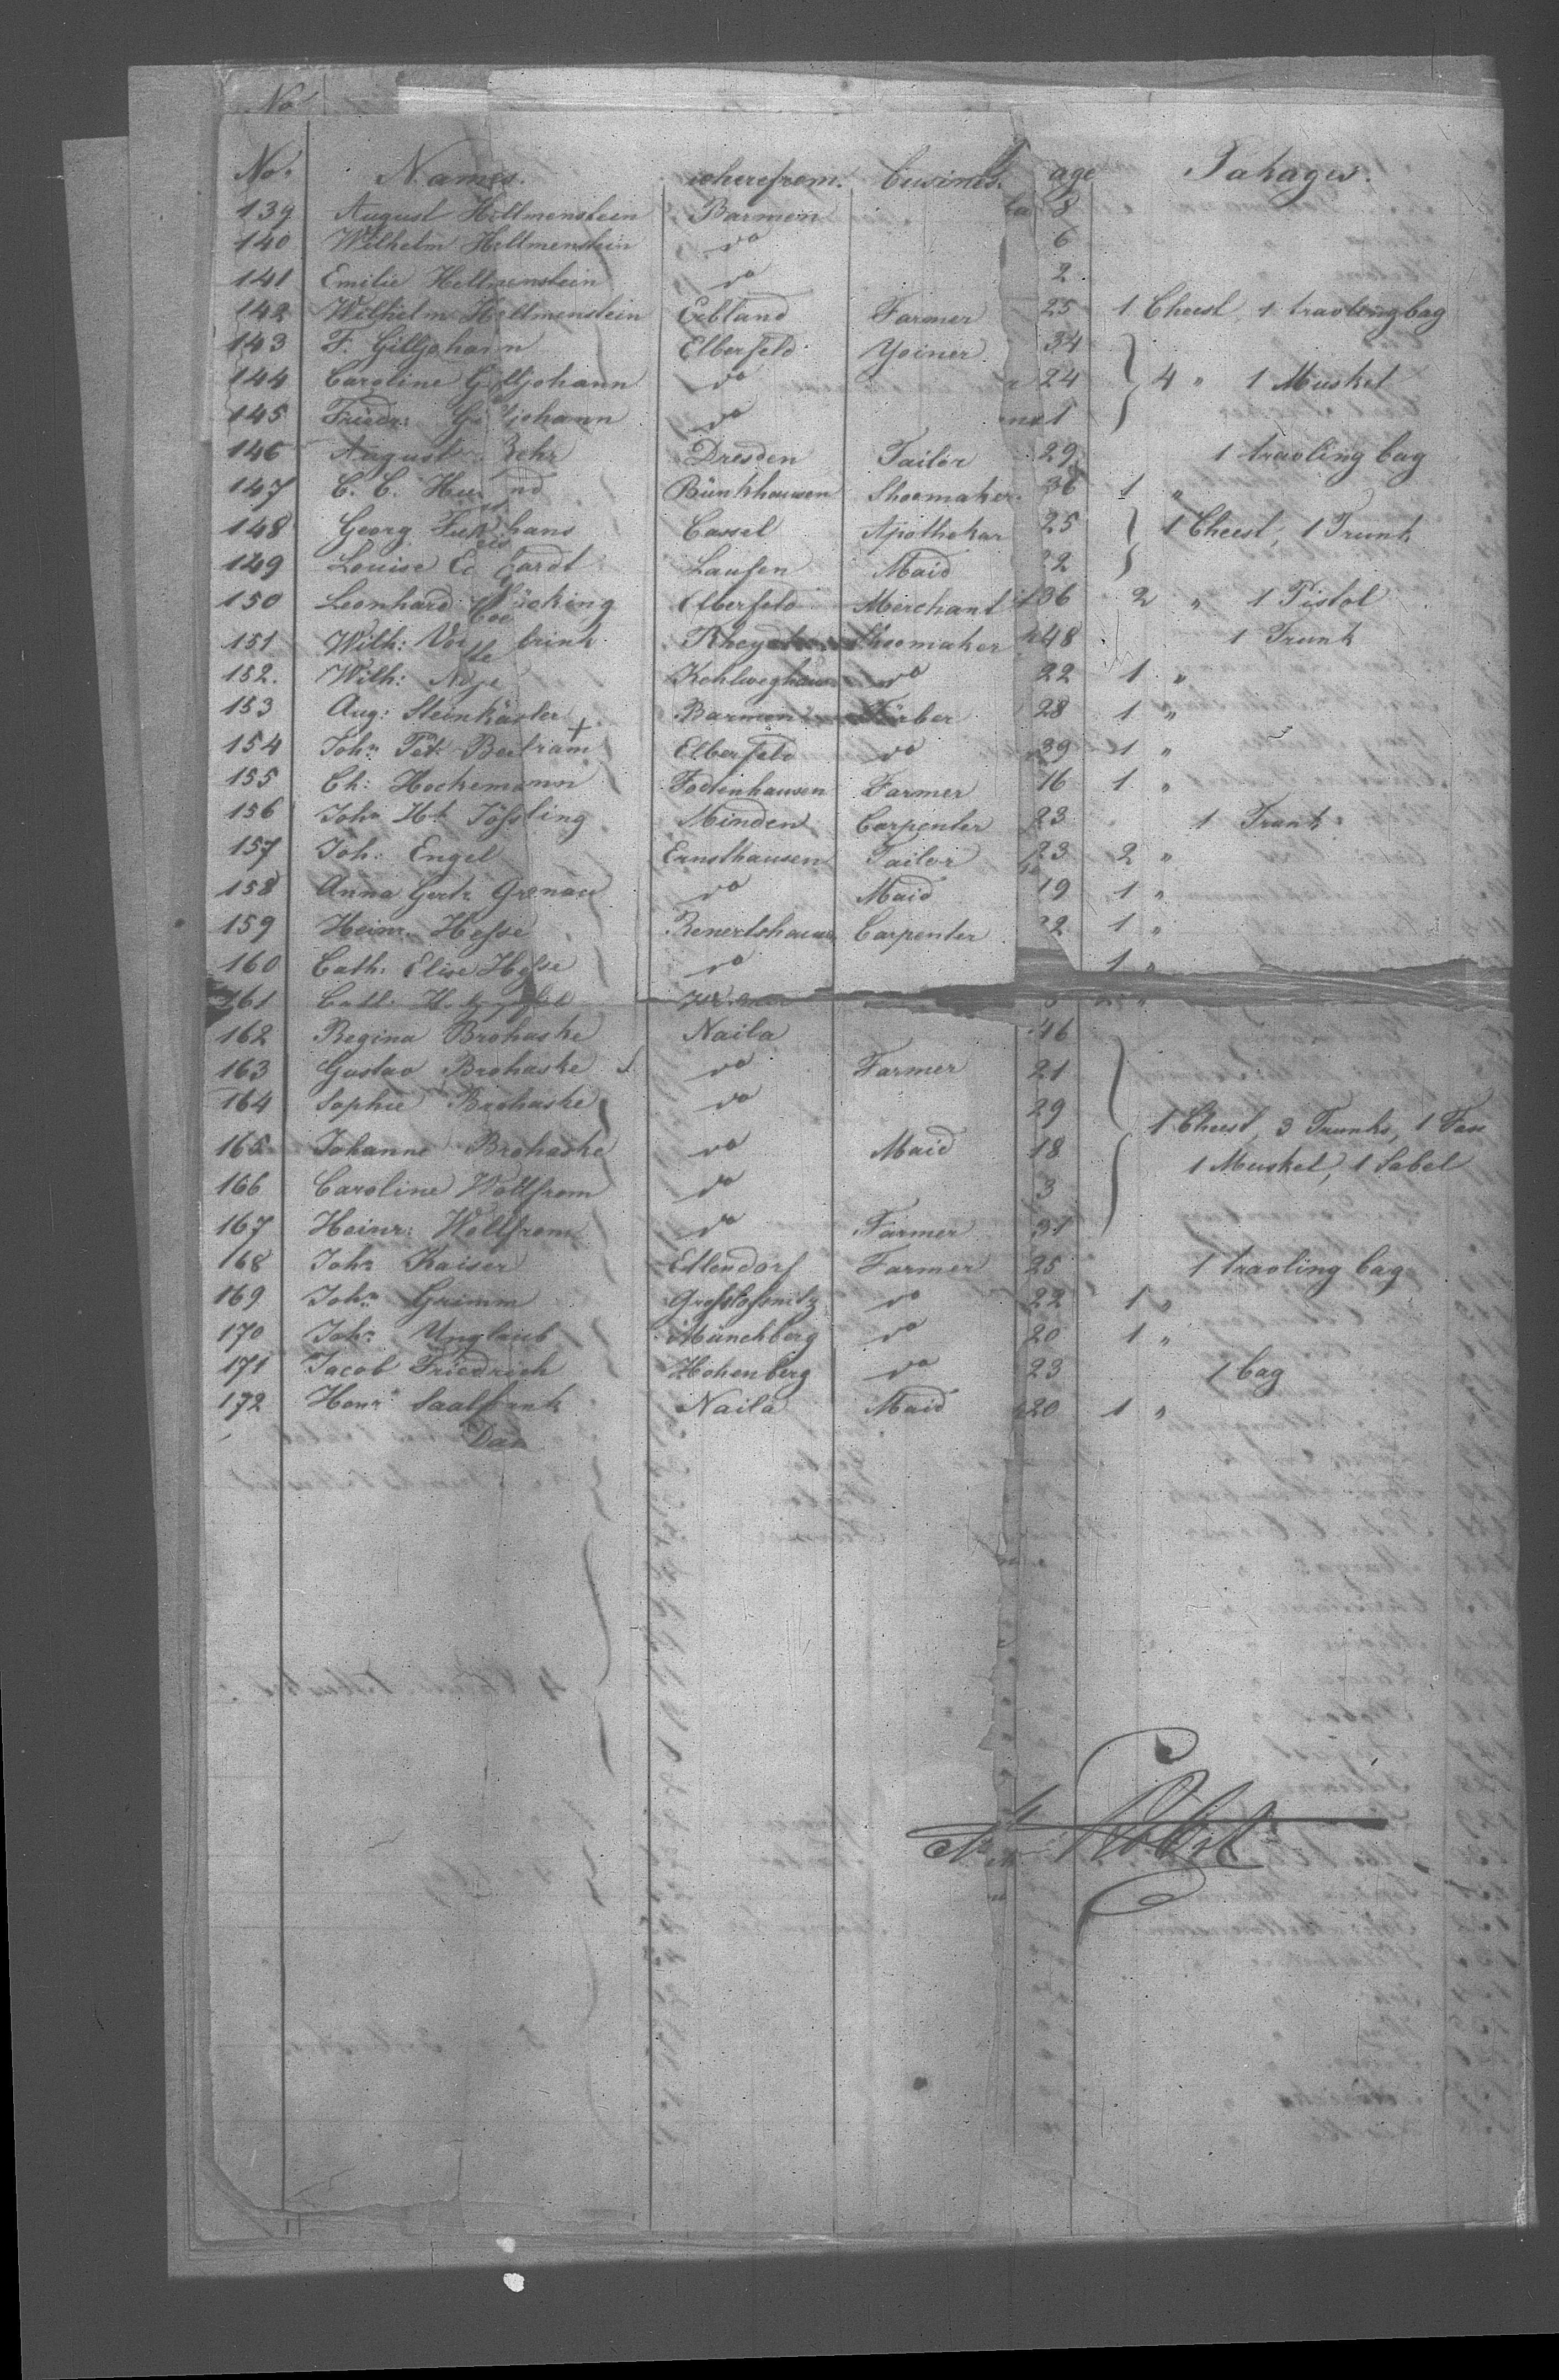 No
No. Names. wherefrom. business. age Pakages.
139 August Hellmenstein Barmen 8
140 Wilhelm Hellmenstein do 6
141 Emilie Hellmenstein do 2
142 Wilhelm Hellmenstein Farmer 25 1 Cheest, 1 travlingbag
143 F. Gilljohann Elberfeld Yoiner 34
144 Caroline Gilljohann do 24 4 " 1 Musket
145 Friedr: Gilljohann do 1
146 August Zehr Dresden Tailor 29 1 travling bag
147 C. C. Bünkhausen Shoemaker 36 1 "
148 Georg Cassel Apothekar 25 1 Cheest, 1 Trunk
149 Louise Laufen Maid 22
150 Leonhard Elberfeld Merchant 36 2 " 1 Pistol
151 Wilh: Shoemaker 48 1 Trunk
152. Wilh: do 22 1 "
153 Aug: Steinkäsler Barmen Färber 28 1 "
154 Johs Pet: Bertram Elberfeld do 39 1 "
155 Ch: Hockemann Fodtenhausen Farmer 16 1 "
156 Johs Ht Jössling Minden Carpenter 23 1 Trunk
157 Joh: Engel Ernsthausen Tailor 23 2 "
158 Anna Gertr. Grenau do Maid 19 1 "
159 Heinr. Hesse Renertshausen Carpenter 22 1 "
160 Cath: Elise Hesse do 1 "
161
162 Regina Brohaske Naila 46
163 Gustav Brohaske do Farmer 21
164 Sophie Brohaske do 29 1 Cheest, 3 Trunks, 1 Fass
165 Johanne Brohaske do Maid 18 1 Musket, 1 Sabel
166 Caroline Wollfrom do 3
167 Heinr: Wollfrom do Farmer 31
168 Johs Kaiser Ettendorf Farmer 25 1 travling bag
169 Johs Grimm do 22 1 "
170 Johs Unglaub Münchberg do 20 1 "
171 Jacob Friedrich Hohenberg do 23 1 bag
172 Henr. Saalfrank Naila Maid 20 1 "